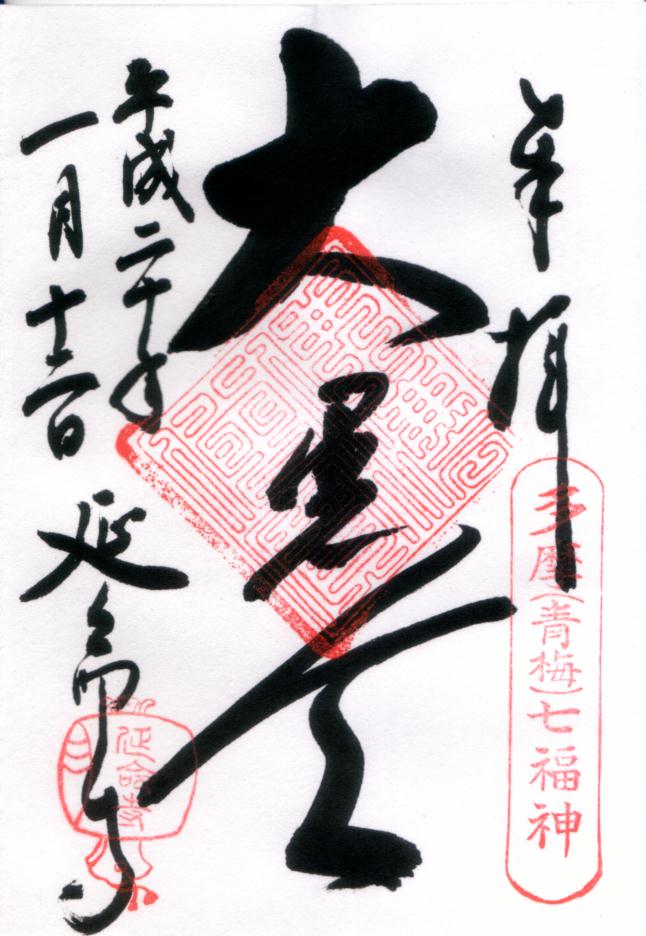 奉拝
多摩(青梅)七福神
大黒天
平成二十年
一月十二日
延命寺
延命寺